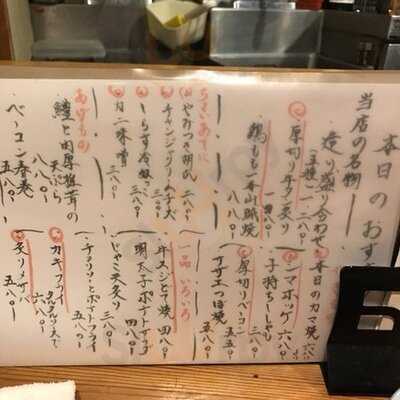 本日のおす
当店の名物
造り盛り合わせ
(五種) 一、二八〇-
厚切り牛タン炙り
鶏もも一本山賊焼
ちさいあてに
チャンジャクリームチーズ
しらす冷奴
三八〇-
肉二味噌
三八〇-
あげもの
鱧と肉厚椎茸の
天ぷら
八八〇-
ベーコン春巻
五八〇-
本日のカマ焼
シマホッケ 六八〇-
子持ちししゃも
厚切りベーコン
五五〇-
サザエつぼ焼
五八〇-
一品いろいろ
牛スジとて焼
四八〇-
明太子ポテトサラダ
じゃこ天炙り
三八〇-
チョリソとポテトフライ
カキフライ
タルタルソースで
六八〇-
炙りメサバ
五八〇-